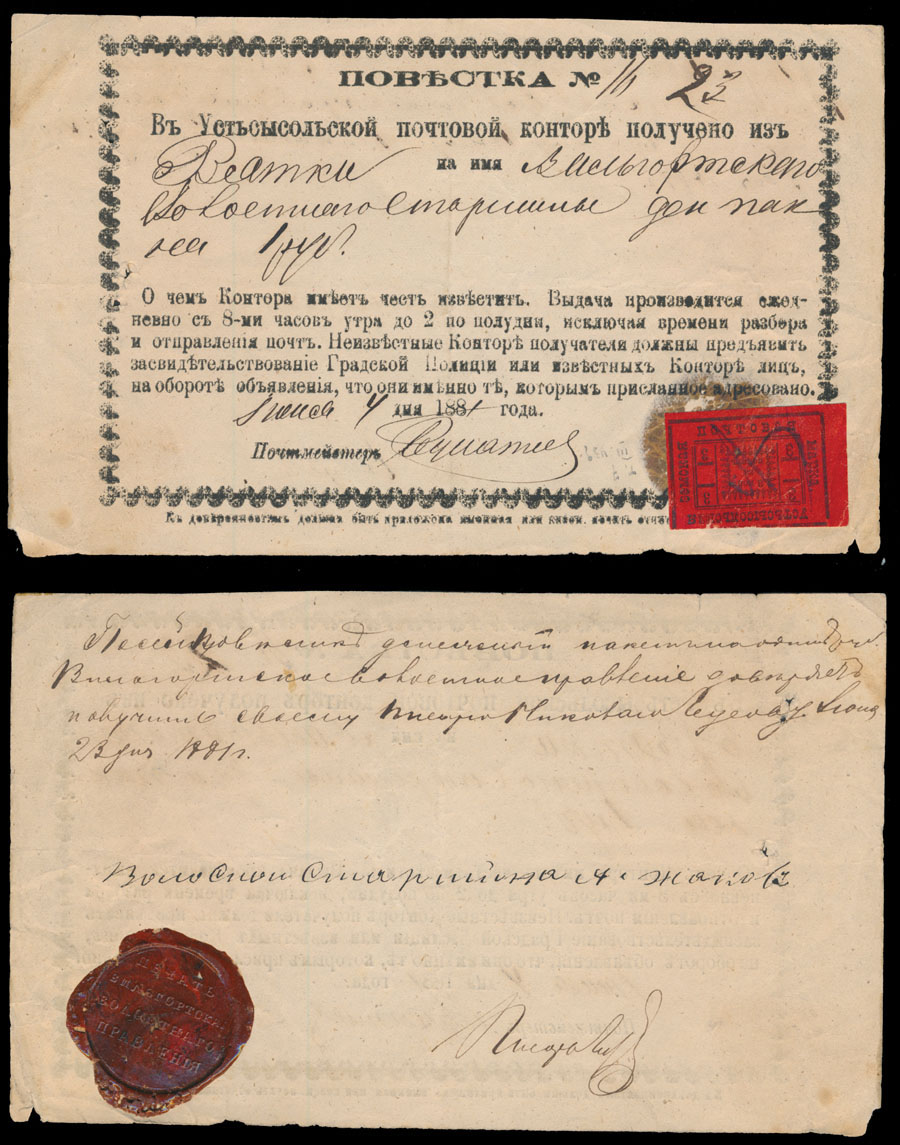 ПОВѢСТКА № 16 23
Въ Устьсысольской почтовой конторѣ получено изъ
Вятки на имя Вильгортскаго
Волостнаго Старшины ден пак
на 1 руб.
О чемъ Контора имѣетъ честь извѣстить. Выдача производится еже-
невно съ 8-ми часовъ утра до 2 по полудни, исключая времени разбора
и отправленія почтъ. Неизвѣстные Конторѣ получатели должны предъявить
засвидѣтельствованіе Градской Полиціи или извѣстныхъ Конторѣ лицъ,
на оборотѣ объявленія, что они именно тѣ, которымъ присланное адресовано.
4 дня 1881 года.
Почтмейстеръ
Къ довѣренностямъ должна быть приложена именная или казен. печать
УСТЬСЫСОЛЬСКОЙ
ЗЕМСКОЙ
ПОЧТЫ
3 3
3 3
По сей повѣсткѣ денежный пакетъ на одинъ руб.
Вильгортское волостное правленіе довѣряетъ
получить своему писарю Николаю
23 дня 1881 г.
Волосной старшина А. Жаковъ
Писарь
ПЕЧАТЬ
ВИЛЬГОРТСКА.
ВОЛОСТНАГО
ПРАВЛЕНІЯ